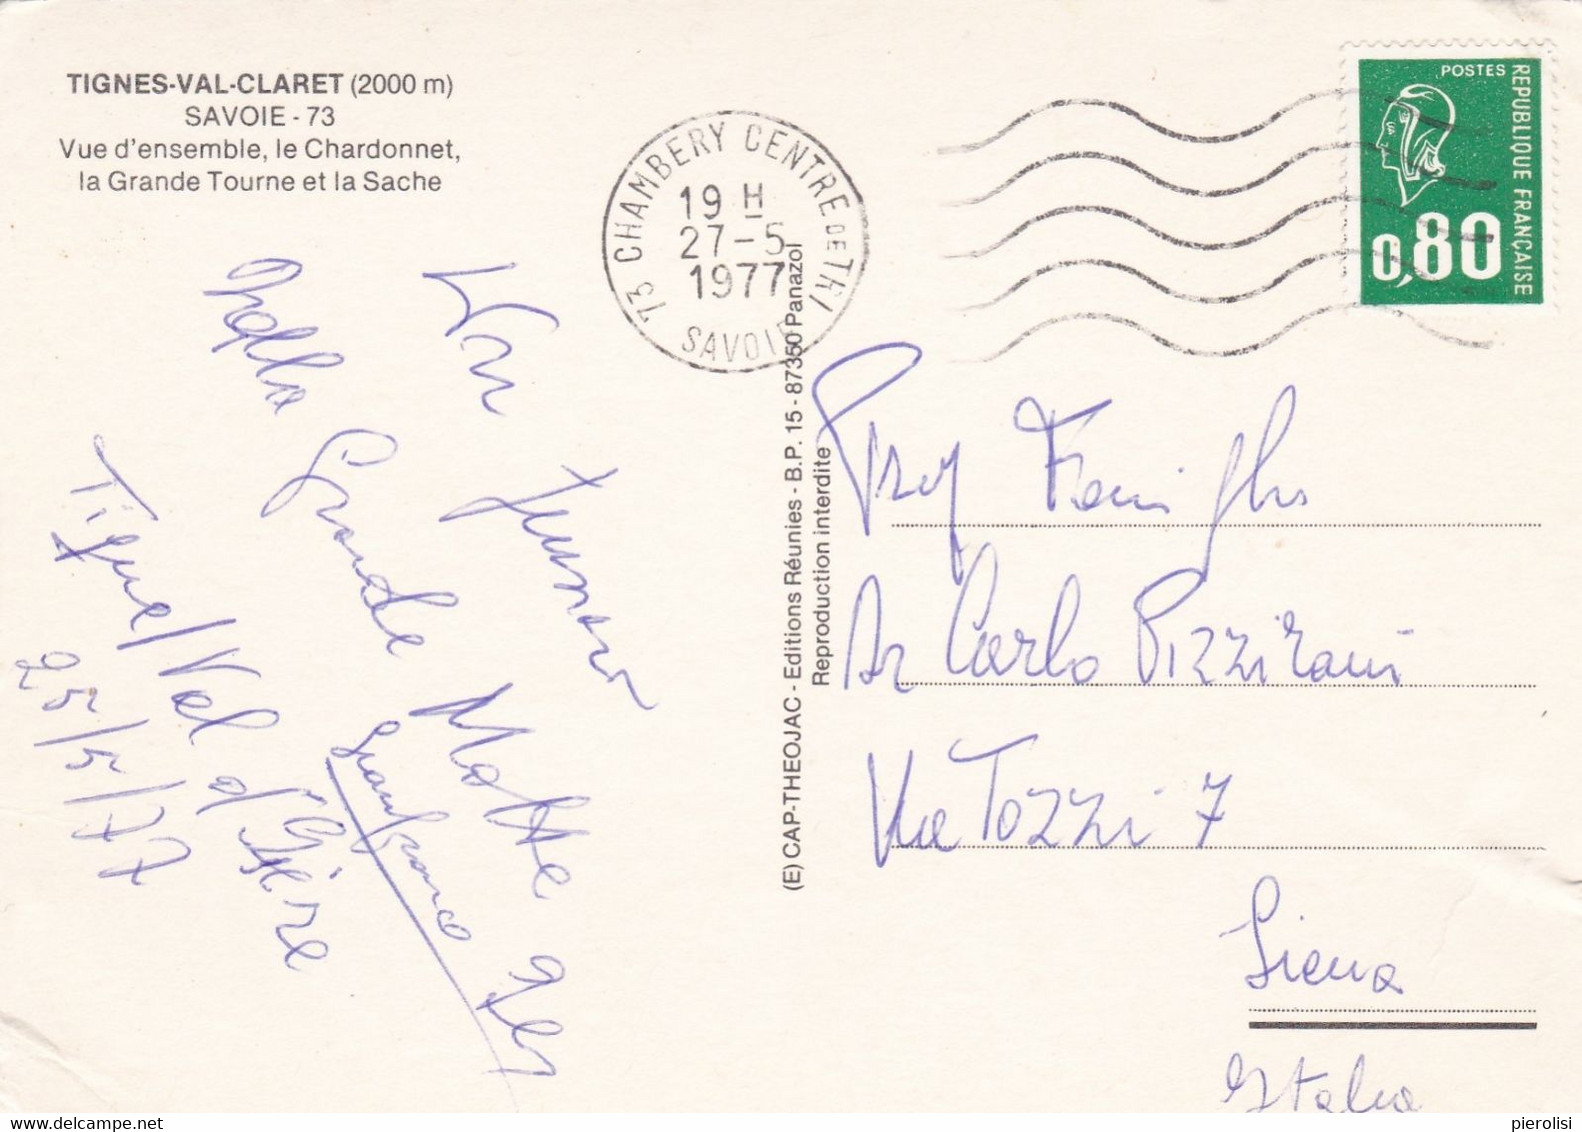 TIGNES-VAL-CLARET (2000 m)
SAVOIE - 73
Vue d'ensemble, le Chardonnet,
la Grande Tourne et la Sache
73 CHAMBERY CENTRE DE TRI
19 H
27-5
1977
SAVOIE
POSTES
REPUBLIQUE FRANÇAISE
0,80
dalla Grande Motte
Tignes/Val d'Isère
25/5/77
Gianfranco
(E) CAP-THEOJAC - Editions Réunies - B.P. 15 - 87350 Panazol
Reproduction interdite
Famiglia
Carlo Pizzirani
Via Tozzi 7
Siena
Italia
pierolisi